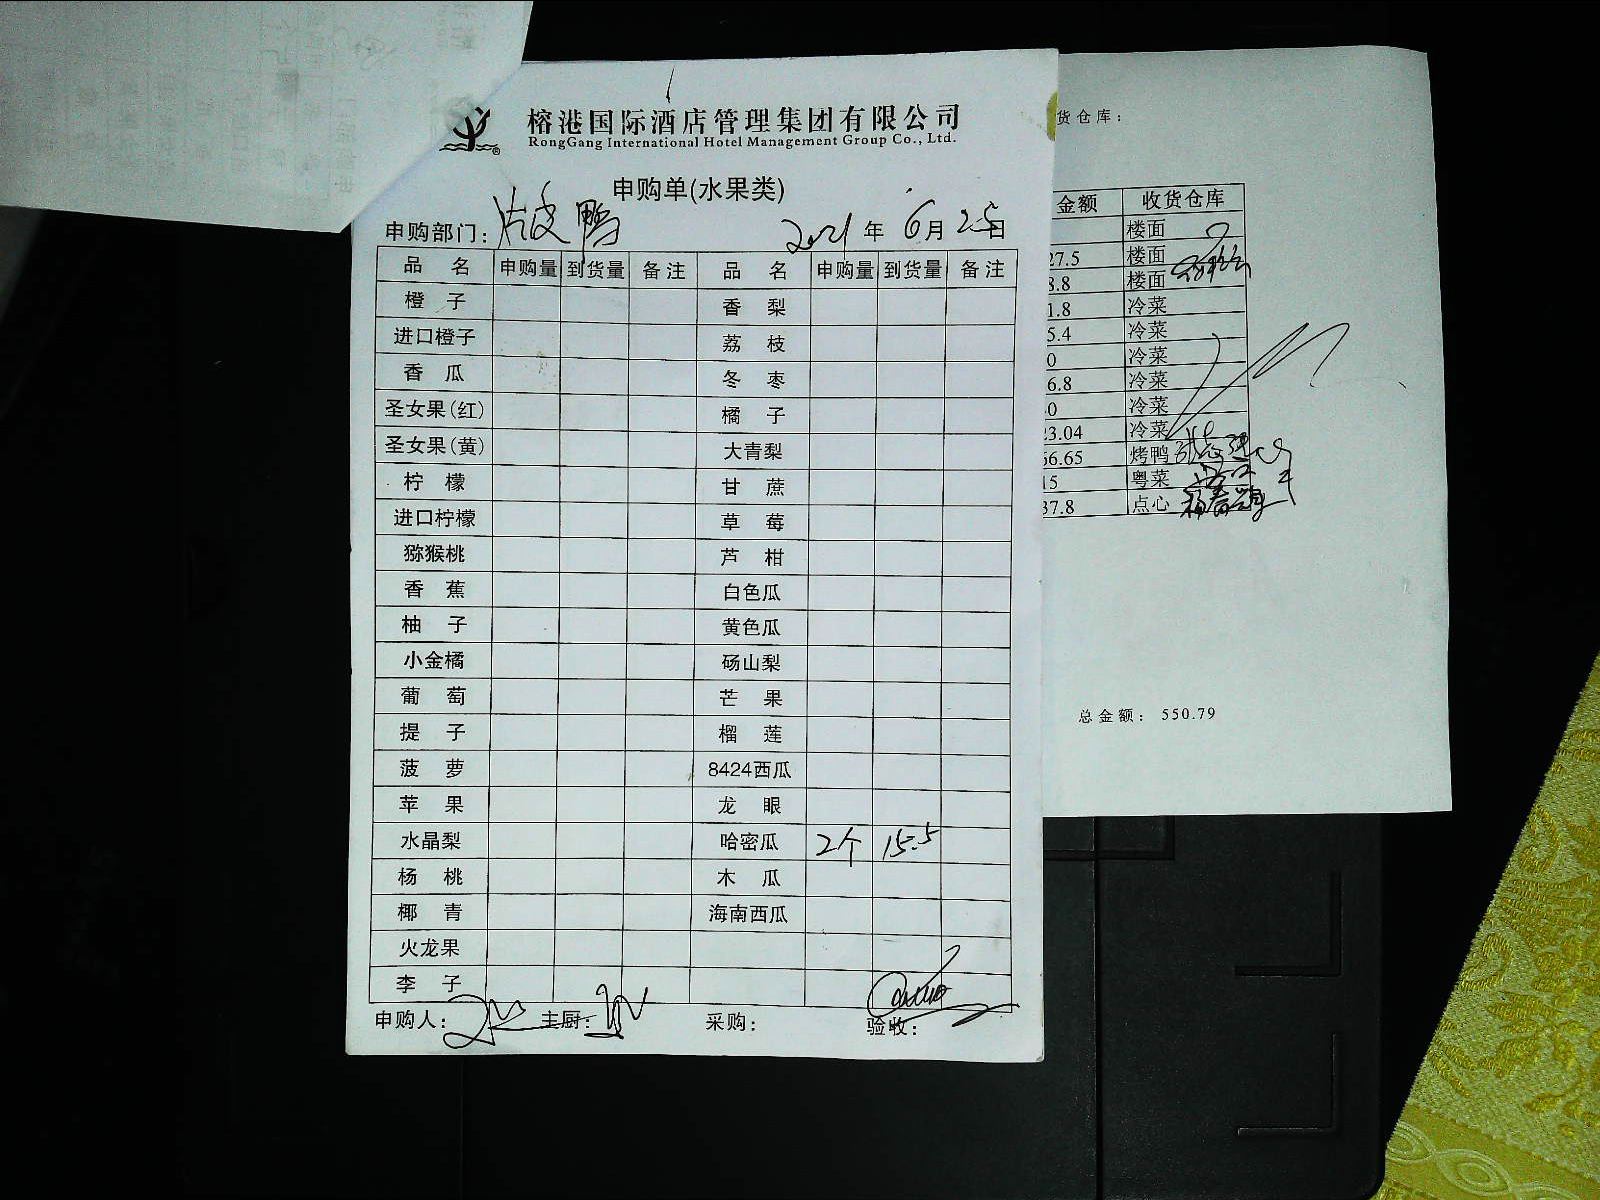 榕港国际酒店管理集团有限公司
RongGang International Hotel Management Group Co., Ltd.
申购单(水果类)
申购部门: 片皮鸭 2021 年 6 月 25 日
品名 申购量 到货量 备注 品名 申购量 到货量 备注
橙子 香梨
进口橙子 荔枝
香瓜 冬枣
圣女果(红) 橘子
圣女果(黄) 大青梨
柠檬 甘蔗
进口柠檬 草莓
猕猴桃 芦柑
香蕉 白色瓜
柚子 黄色瓜
小金橘 砀山梨
葡萄 芒果
提子 榴莲
菠萝 8424西瓜
苹果 龙眼
水晶梨 哈密瓜 2个 15.5
杨桃 木瓜
椰青 海南西瓜
火龙果
李子
申购人: 主厨: 采购: 验收:
货仓库:
金额 收货仓库
楼面
27.5 楼面
8.8 楼面
1.8 冷菜
5.4 冷菜
0 冷菜
6.8 冷菜
0 冷菜
23.04 冷菜
56.65 烤鸭
15 粤菜
37.8 点心
总金额: 550.79